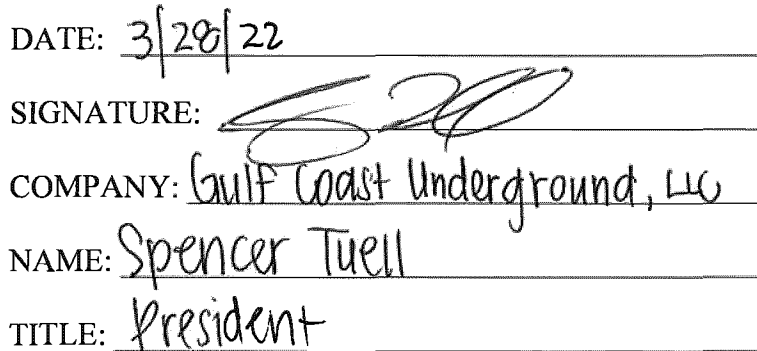 DATE: 3/28/22
SIGNATURE:
COMPANY: Gulf Coast Underground, LLC
NAME: Spencer Tuell
TITLE: President